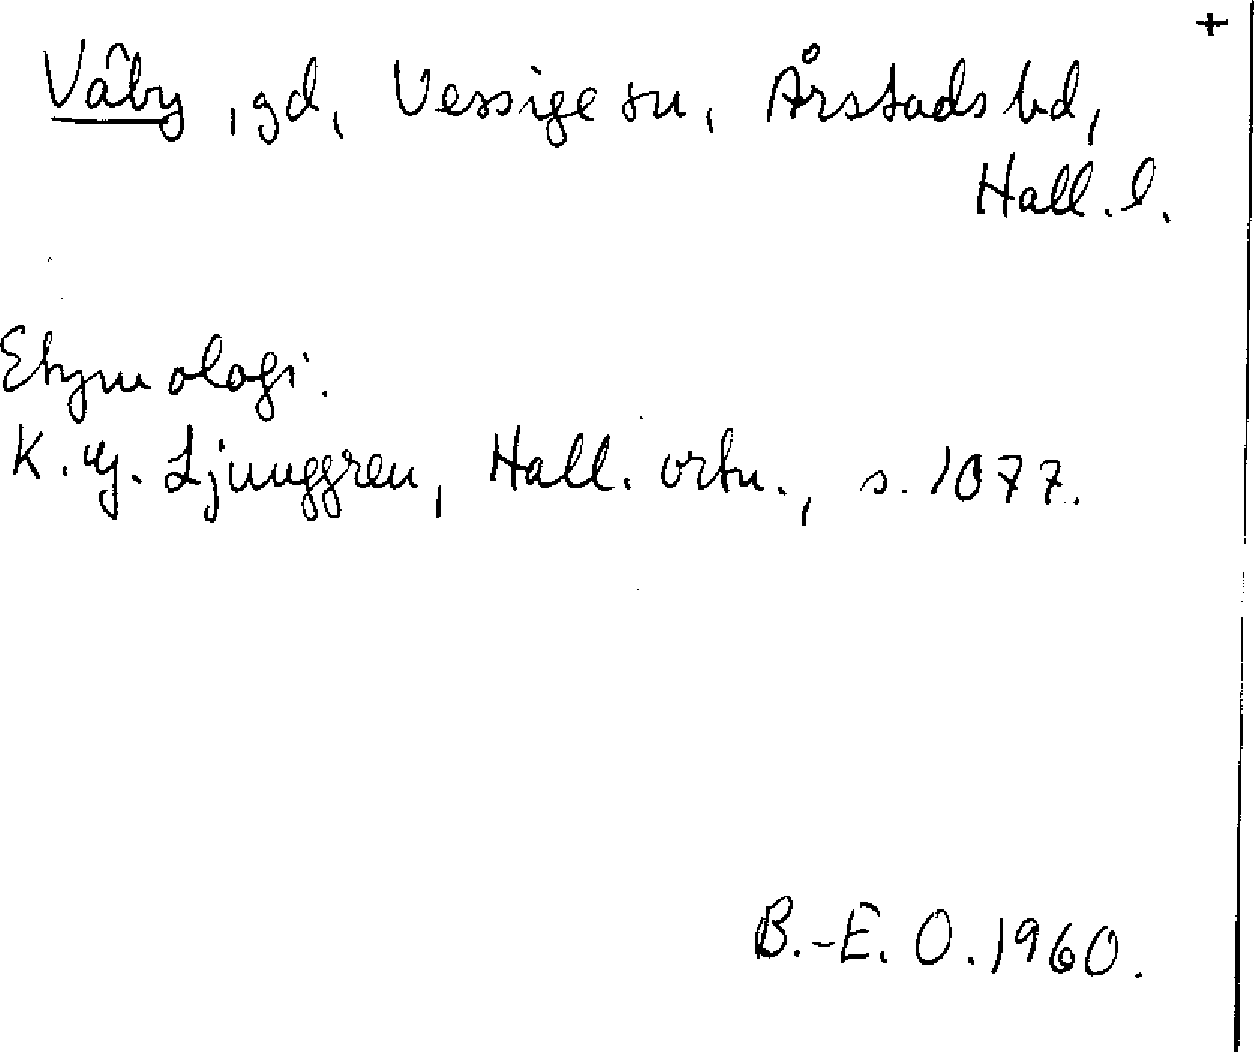 +
Våby, gd, Vessige sn, Årstads hd,
Hall. l.
Etymologi.
K. G. Ljunggren, Hall. ortn., s. 1077.
B.-E. O. 1960.